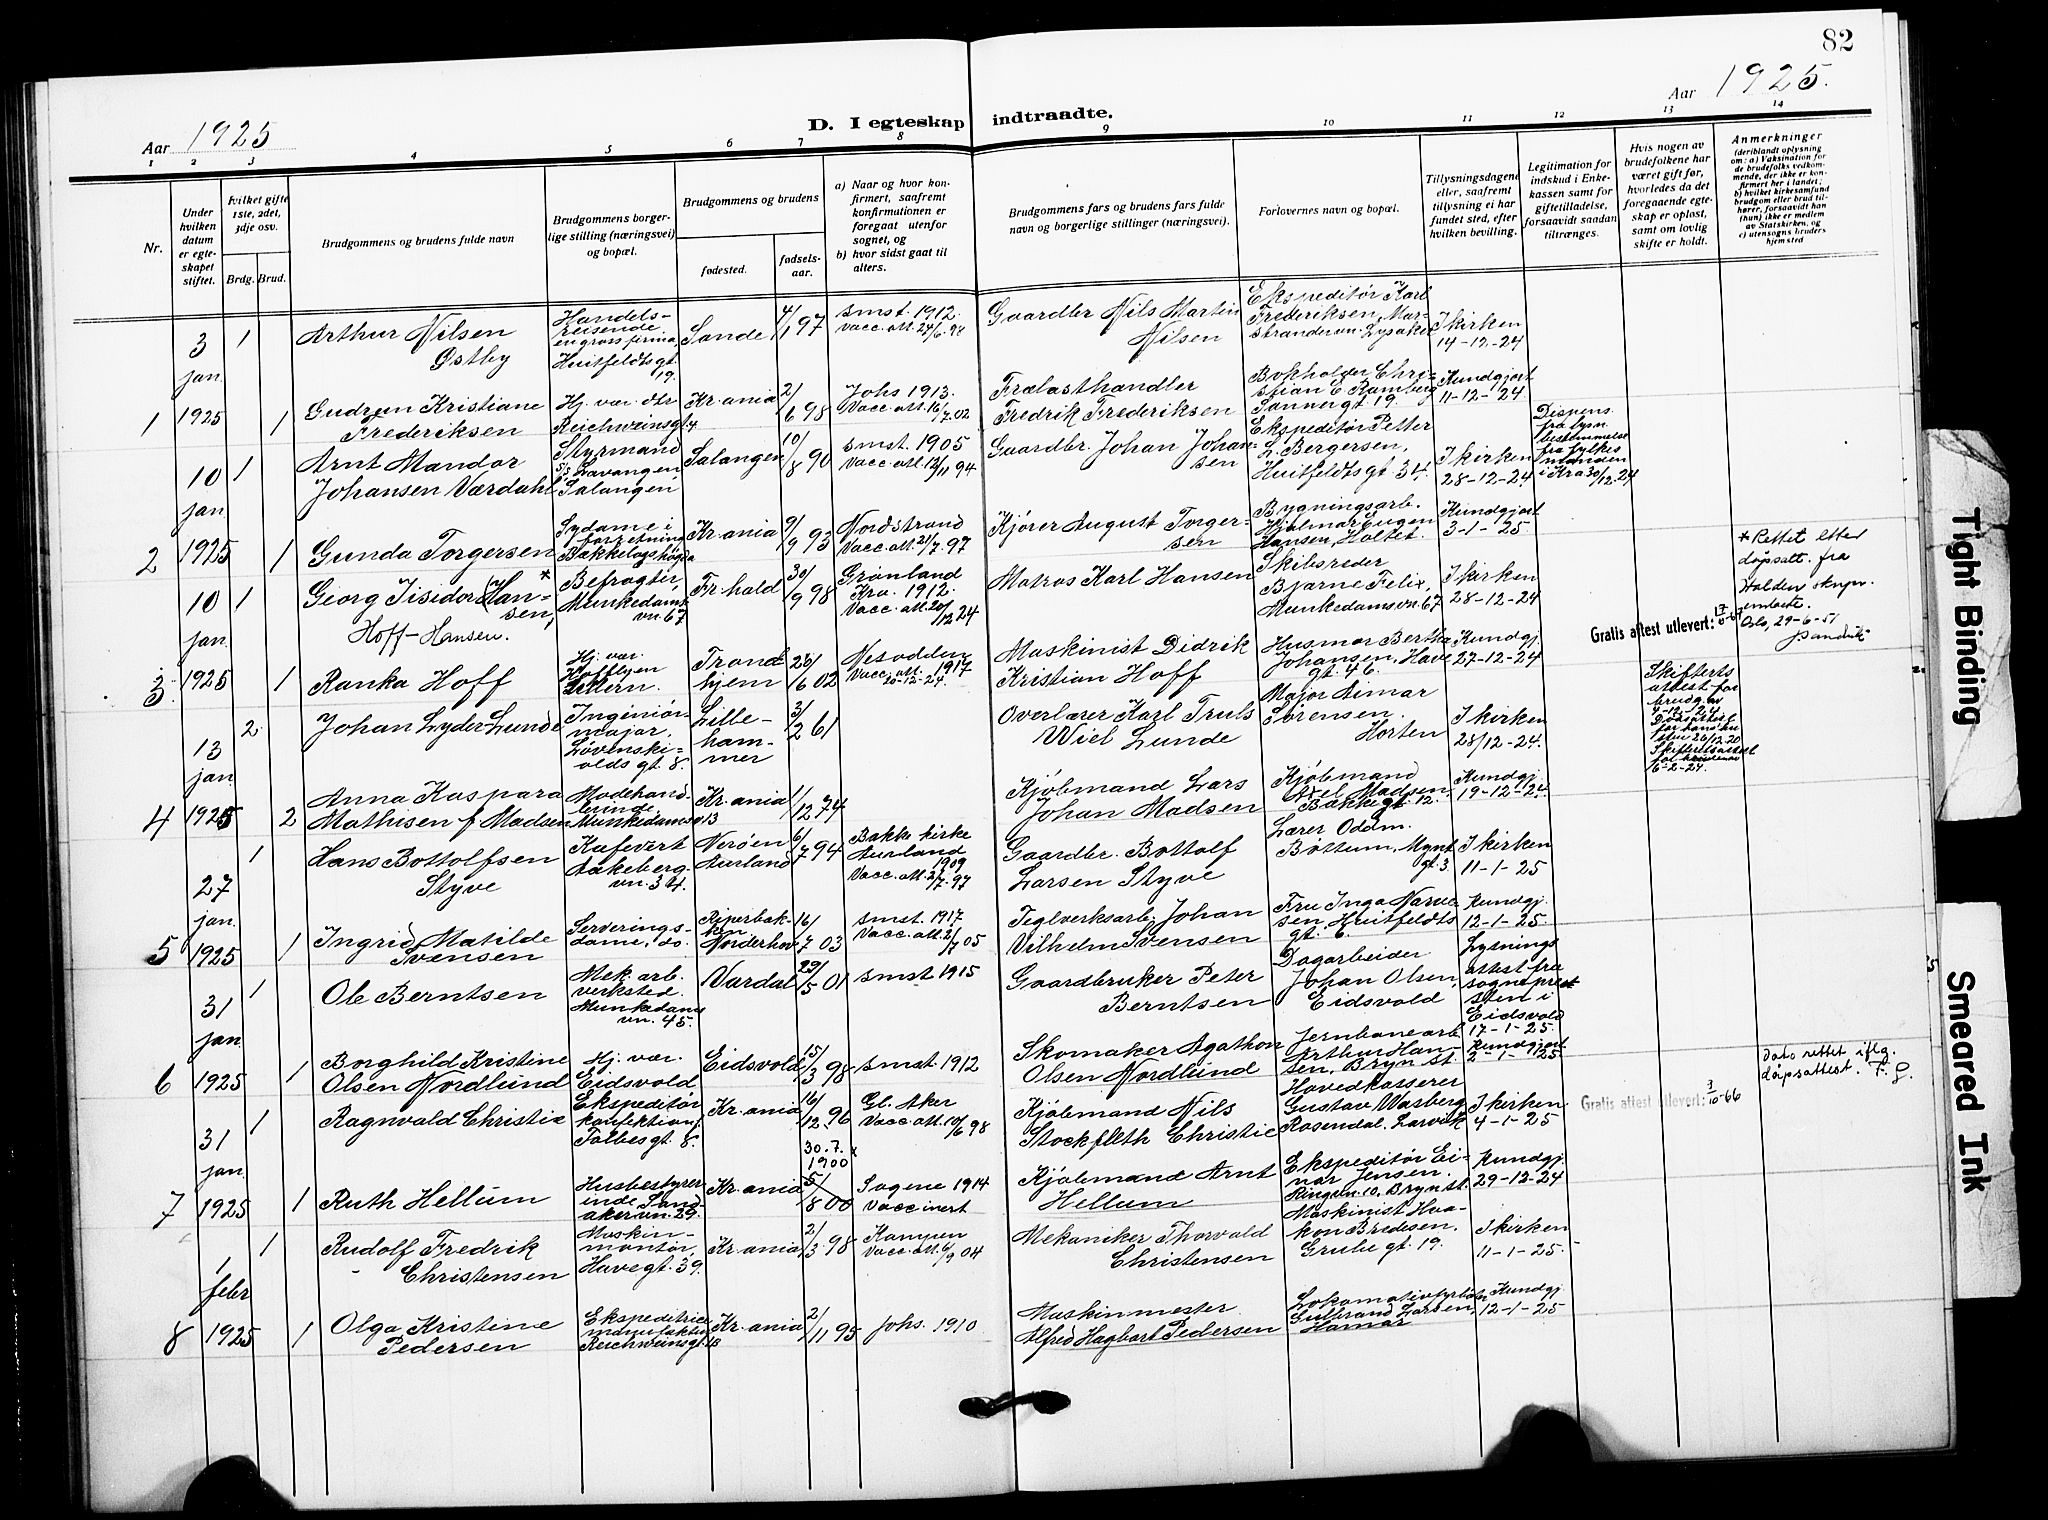 82
Aar 1925
D. I egteskap indtraadte.
Aar 1925.
1 2 3 4 5 6 7 8 9 10 11 12 13 14
Nr.
Under hvilken datum er egteskapet stiftet.
Hvilket gifte 1ste, 2det, 3dje osv.
Brdg. Brud.
Brudgommens og brudens fulde navn
Brudgommens borgerlige stilling (næringsvei) og bopæl.
Brudgommens og brudens
fødested.
fødselsaar.
a) Naar og hvor konfirmert, saafremt konfirmationen er foregaat utenfor sognet, og
b) hvor sidst gaat til alters.
Brudgommens fars og brudens fars fulde navn og borgerlige stillinger (næringsvei).
Forlovernes navn og bopæl.
Tillysningsdagene eller, saafremt tillysning ei har fundet sted, efter hvilken bevilling.
Legitimation for indskud i Enkekassen samt for giftetilladelse, forsaavidt saadan tiltrænges.
Hvis nogen av brudefolkene har været gift før, hvorledes da det foregaaende egteskap er opløst, samt om lovlig skifte er holdt.
Anmerkninger
(deriblandt oplysning om: a) Vaksination for de brudefolks vedkommende, der ikke er konfirmert her i landet; b) hvilket kirkesamfund brudgom eller brud tilhører, forsaavidt han (hun) ikke er medlem av Statskirken, og c) utensogns bruders hjemsted
3 jan. 1 Arthur Nilsen Østby
Handelsreisende engrosfirma, Huitfeldtsgt. 19.
Sande 4/1 97
smst. 1912. Vacc. att. 24/6. 98
Gaardbr Nils Martin Nilsen
Ekspeditør Karl Frederiksen, Marstrandervn. Lysaker
I kirken 14-12-24
1 1925 1 Gudrun Kristiane Frederiksen
Hj. vær. dtr Reichweinsgt 4
Kr.ania 2/6 98
Johs 1913. Vacc. att. 16/7. 02
Frælasthandler Fredrik Frederiksen
Bokholder Christian E. Ramberg Sannergt. 19.
Kundgjort 11-12-24
10 jan. 1 Arnt Mandor Johansen Værdahl
Styrmand S/S Lavangen Salangen
Salangen 10/8 90
smst. 1905 Vacc. att. 12/11 94
Gaardbr. Johan Johansen
Ekspeditør Petter L. Bergersen, Huitfeldtsgt. 34,
I kirken 28-12-24
Dispens. fra lysn. bestemmelse fra fylkesmanden i Kra 30/12. 24
2 1925 1 Gunda Torgersen
Sydame i forretning Bækkelagshøgda
Kr.ania 9/9 93
Nordstrand Vacc. att. 21/7. 97
Kjører August Torgersen
Bygningsarb. Hjalmar Eugen Hansen, Holtet.
Kundgjort 3-1-25
10 jan. 1 Georg Isidor (Hansen,* Hoff-Hansen.
Befragter, Munkedamsvn. 67
Fr.hald 30/9 98
Grønland Kra. 1912. Vacc. att. 20/12 24
Matros Karl Hansen
Skibsreder Bjarne Felix, Munkedamsvn. 67
I kirken 28-12-24
Gratis attest utlevert:
* Rettet etter dåpsatt. fra Halden
Oslo, 29-6-51
3 1925 1 Ranka Hoff
Hj. vær. Hofflyen Skøern.
Trondhjem 26/6 02
Nesodden 1917 Vacc. att. 20-12-24.
Maskinist Didrik Kristian Hoff
Husmor Bertha Johansen, Havegt. 46.
Kundgj. 27-12-24
13 jan. 2. Johan Lyder-Lunde
Ingeniør major. Løvenskioldsgt. 8.
Lillehammer 3/2 61
Overlærer Karl Truls Wiel Lunde
Major Aimar Sørensen. Horten
I kirken 28/12-24.
Skifterts attest for brudg. av 4-12-24.
6-2-24.
4 1925 2 Anna Kaspara Mathisen f. Madsen
Modehandlerinde. Munkedamsvn 13
Kr.ania 1/12 74
Kjøbmand Lars Johan Madsen
Kjøbmand Axel Madsen, Bakkegt. 12.
Kundgj. 19-12-24.
27 jan. 1 Hans Bottolfsen Styve
Kafevert Aakebergvn. 34.
Nerøen Aurland 6/7 94
Bakke kirke Aurland 1909 Vacc. att. 21/7. 97
Gaardbr. Bottolf Larsen Styve
Lærer Oddm. Bøttum, Myntgt. 3
I kirken 11-1-25
5 1925 1 Ingrid Matilde Svensen
Serveringsdame, do.
Riperbakken Norderhov 16/7 03
smst. 1917 Vacc. att. 21/7 05
Teglverksarb. Johan Vilhelm Svensen
Fru Inga Narvesen, Huitfeldtsgt. 6.
Kundgj. 12-1-25.
31 jan. 1 Ole Berntsen
Mek. arb. verksted. Munkedamsvn. 45.
Vardal 29/5 01
smst 1915
Gaardbruker Peter Berntsen
Dagarbeider Johan Olsen, Eidsvold
Lysnings attest fra sogneprest sten i Eidsvold 17-1-25.
6 1925 1 Borghild Kristine Olsen Nordlund
Hj. vær. Eidsvold
Eidsvold 15/3 98
smst. 1912
Skomaker Agathon Olsen Nordlund
Jernbanearb. Arthur Hansen, Bryn st.
Kundgjort 2-1-25
31 jan. 1 Ragnvald Christie
Ekspeditør konfektion, Falbesgt. 8.
Kr.ania 16/12. 96
Gl. Aker Vacc. att. 10/6 98
Kjøbmand Nils Stockfleth Christie
Hovedkasserer Gustav Wasberg Rosendal, Larvik
I kirken 4-1-25
Gratis attest utlevert: 3/10-66
Dato rettet iflg. dåpsattest. F. G.
7 1925 1 Ruth Hellum
Husbestyrerinde Sandakervn. 29.
Kr.ania 30.7. x 1900 5/8 00
Sagene 1914 Vaccinert
Kjøbmand Arnt Hellum
Ekspeditør Einar Jensen. Ringvn. 10, Bryn st.
Kundgj. 29-12-24
1 febr 1 Rudolf Fredrik Christensen
Maskinmontør, Havegt. 39.
Kr.ania 2/3 98
Kampen Vacc. att. 6/9 04
Mekaniker Thorvald Christensen
Maskinist Haakon Bredesen. Grubegt. 19.
I kirken 11-1-25.
8 1925 1 Olga Kristine Pedersen
Ekspeditrice manufaktur Reichweinsgt. 13
Kr.ania 2/11 95
Johs. 1910
Maskinmester Alfred Hagbart Pedersen
Lokomotivfyrbøter Gulbrand Larsen, Hamar
Kundgj. 12-1-25
Tight Binding
Smeared Ink